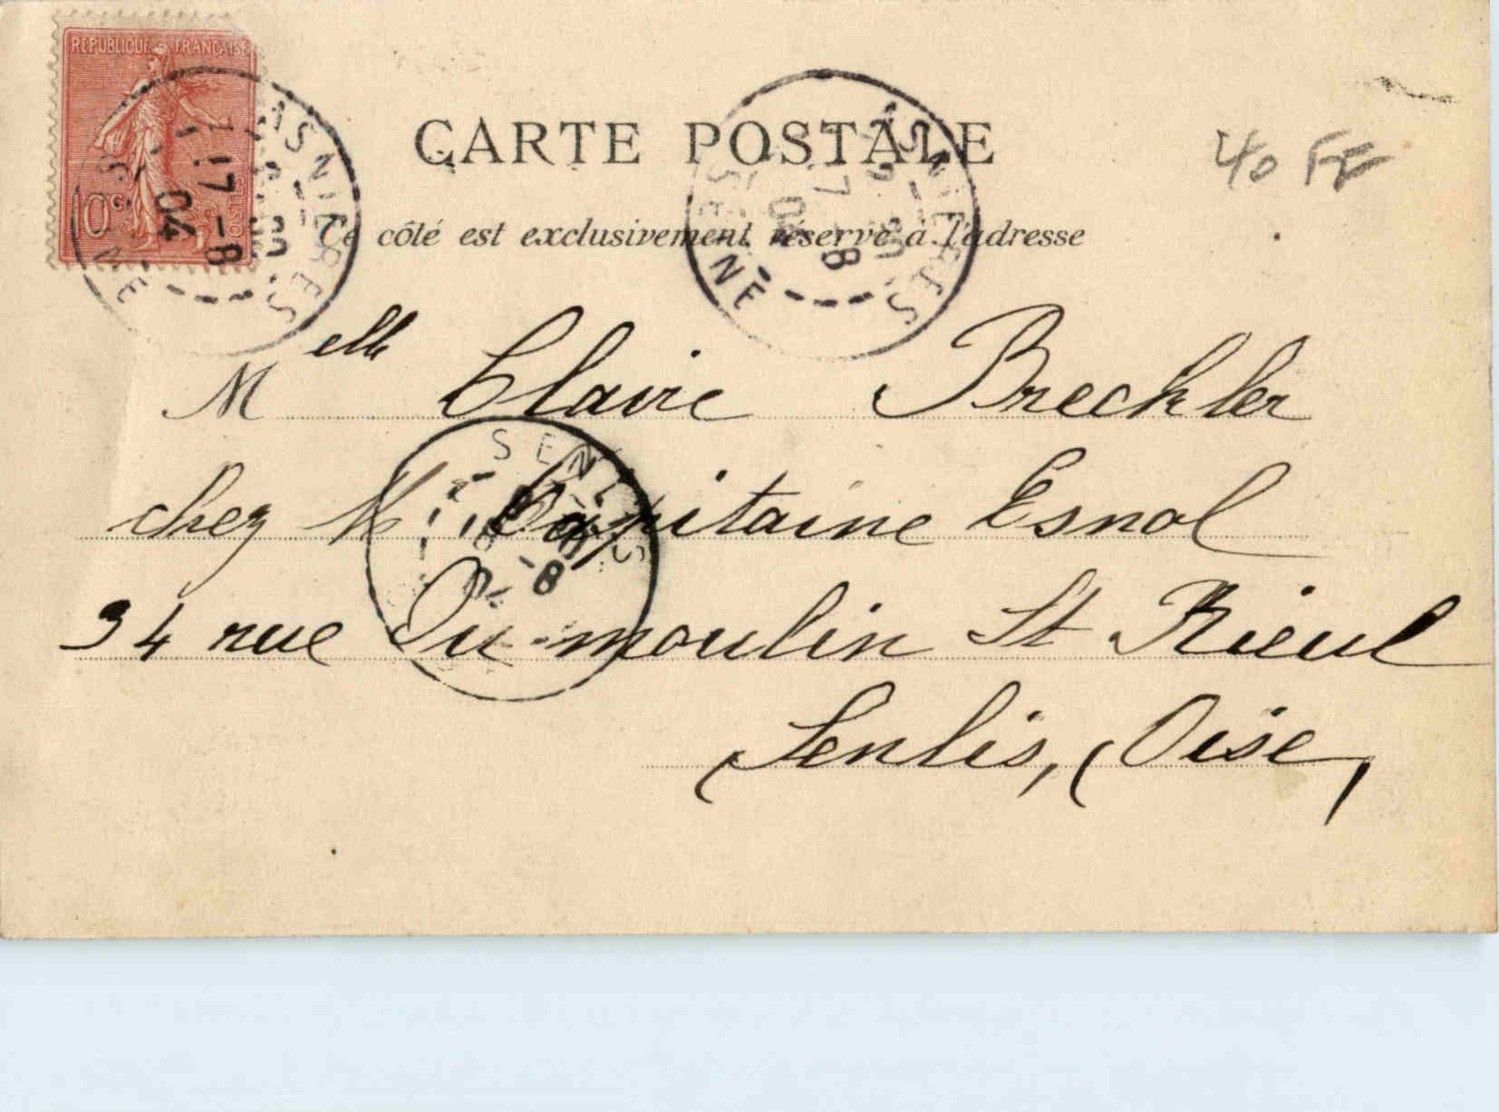 REPUBLIQUE FRANCAISE
10c
POSTES
CARTE POSTALE
40 FF
Ce côté est exclusivement réservé à l'adresse
ASNIERES
17-8
04
SEINE
ASNIERES
17-8
04
SEINE
Melle Claire Brechler
chez M Capitaine Esnol
SENLIS
34 rue Du moulin St Rieul
Senlis, (Oise,